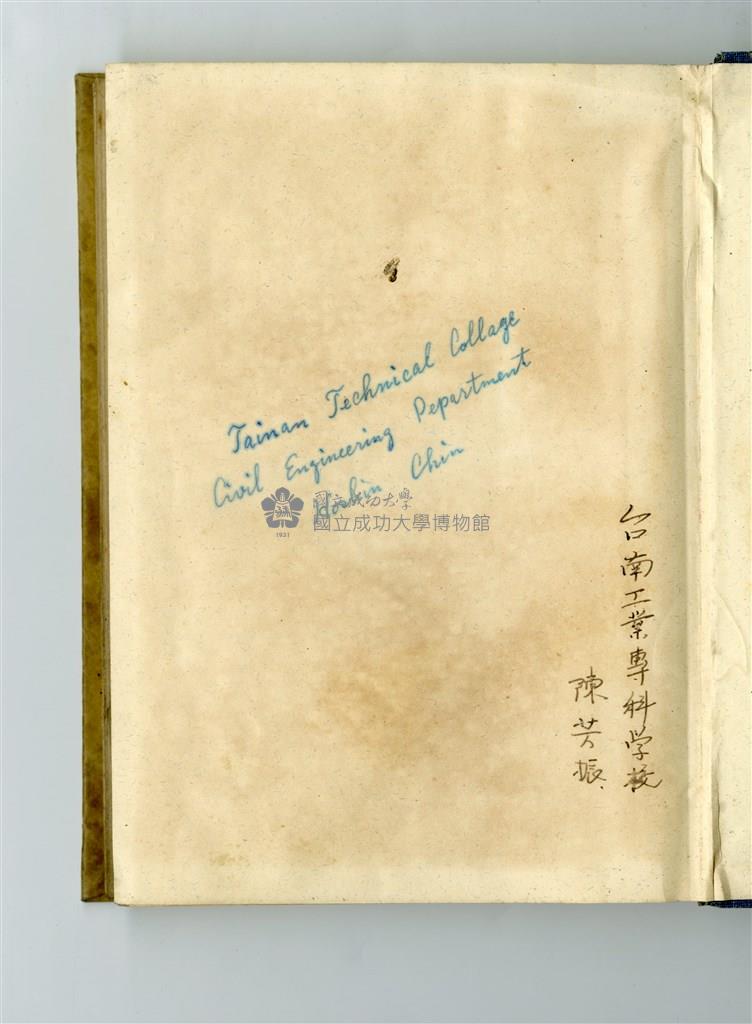 Tainan Technical Collage
Civil Engineering Department
Chin
國立成功大學
國立成功大學博物館
1931
台南工業專科学校
陳芳振